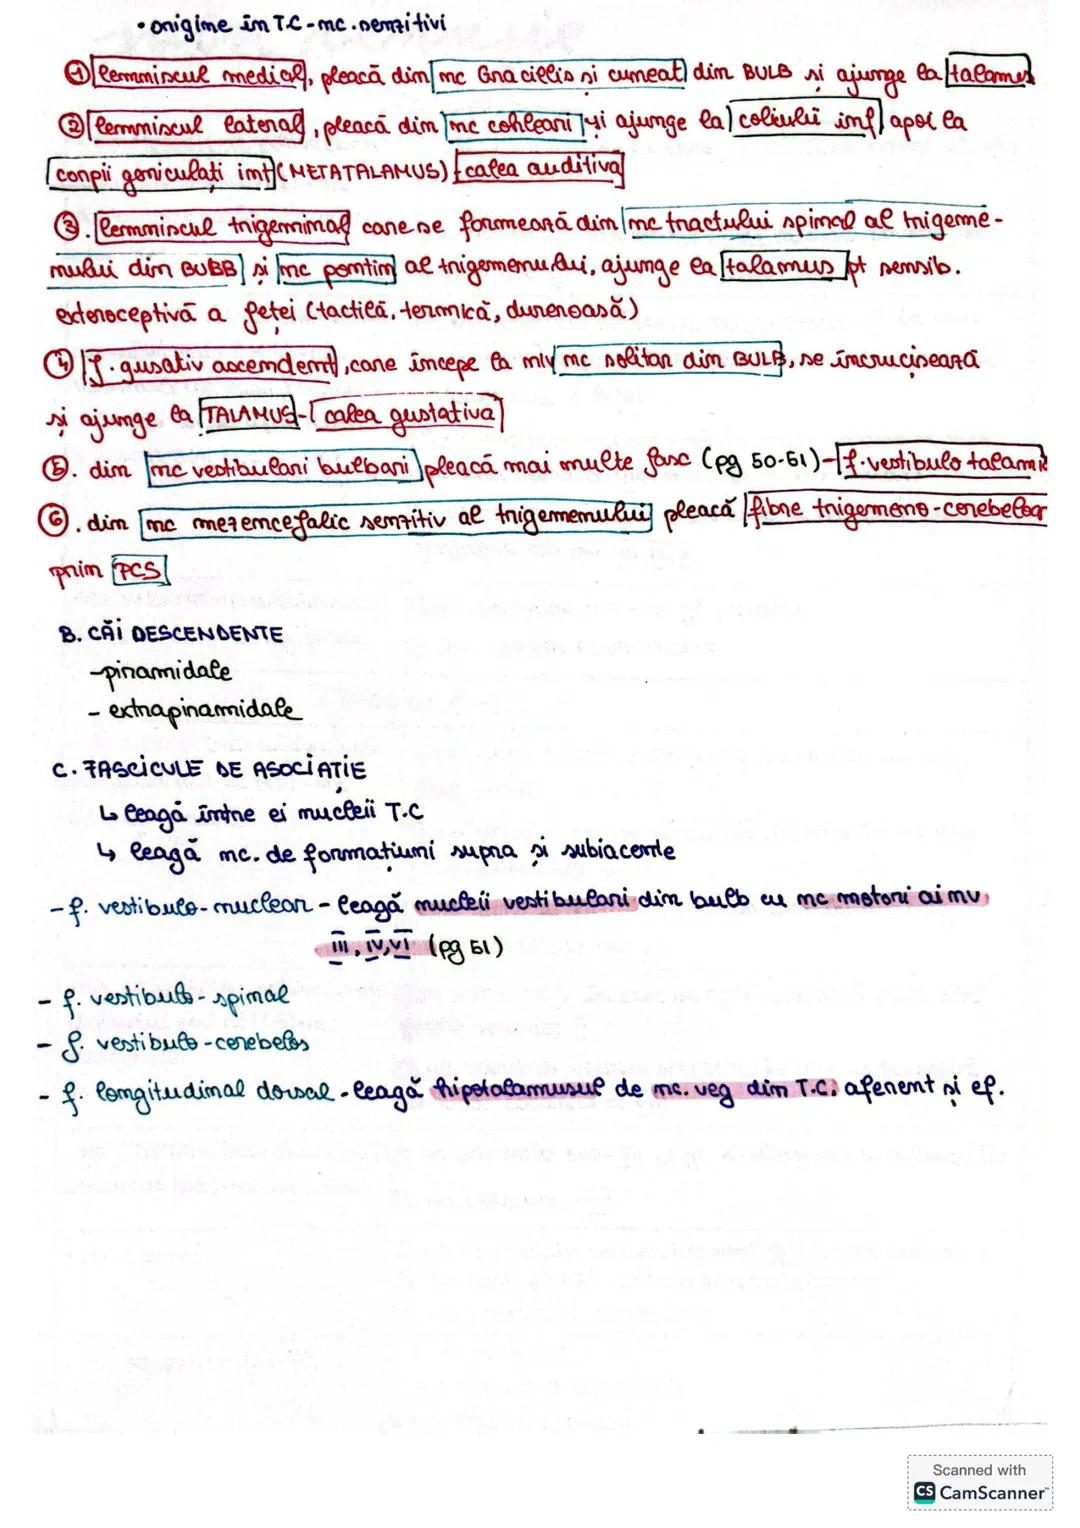 • origine în T.C - nc. senzitivi
① lemniscul medial, pleacă din nc Gracillis și cuneat din BULB și ajunge la talamus
② lemniscul lateral, pleacă din nc cohleari și ajunge la coliculii inf apoi la
corpii geniculați int (METATALAMUS) - calea auditiva
③. lemniscul trigeminal care se formează din nc tractului spinal al trigeme-
nului din BULB și nc pontin al trigemenului, ajunge la talamus pt sensib.
exteroceptivă a feței (tactilă, termică, dureroasă)
④ f. gustativ ascendent, care începe la niv nc solitar din BULB, se încrucișează
și ajunge la TALAMUS - calea gustativa
⑤. din nc vestibulari bulbari pleacă mai multe fasc (pg 50-51) - f. vestibulo talamic
⑥. din nc mezencefalic senzitiv al trigemenului pleacă fibre trigemeno-cerebeloar
prin PCS
B. CĂI DESCENDENTE
- piramidale
- extrapiramidale
C. FASCICULE DE ASOCIAȚIE
↳ leagă între ei nucleii T.C
↳ leagă nc. de formațiuni supra și subiacente
- f. vestibulo-nuclear - leagă nucleii vestibulari din bulb cu nc motori ai nv
III, IV, VI (pg 51)
- f. vestibulo-spinal
- f. vestibulo-cerebelos
- f. longitudinal dorsal - leagă hipotalamusul de nc. veg din T.C. aferent și ef.
Scanned with
CS CamScanner